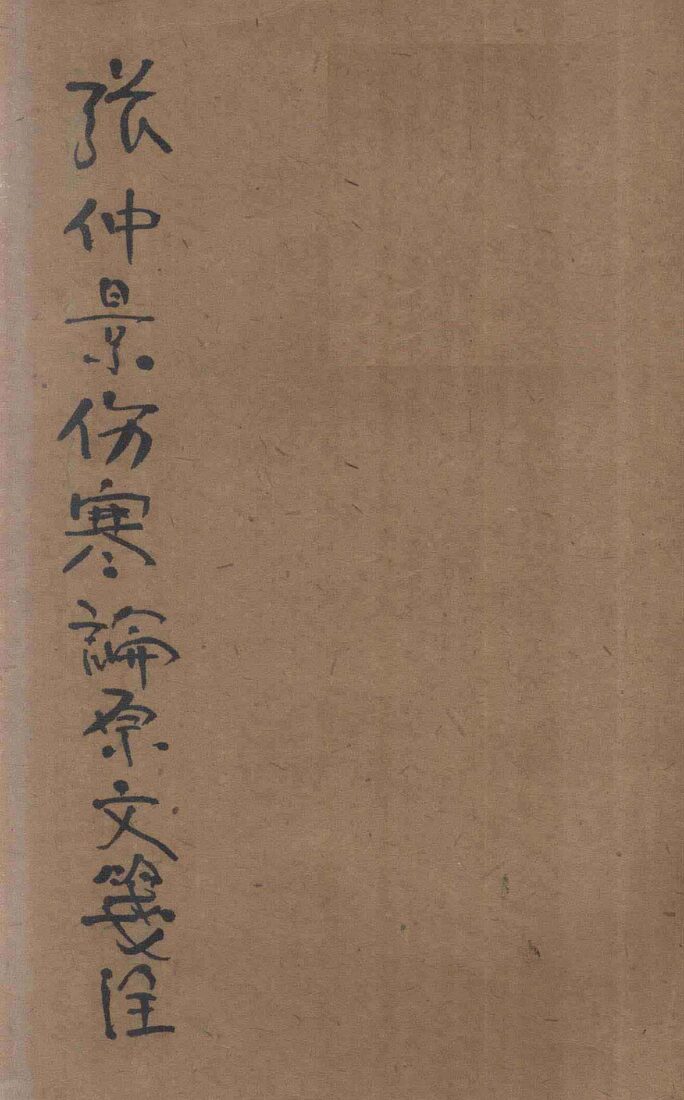 张仲景伤寒論原文箋注